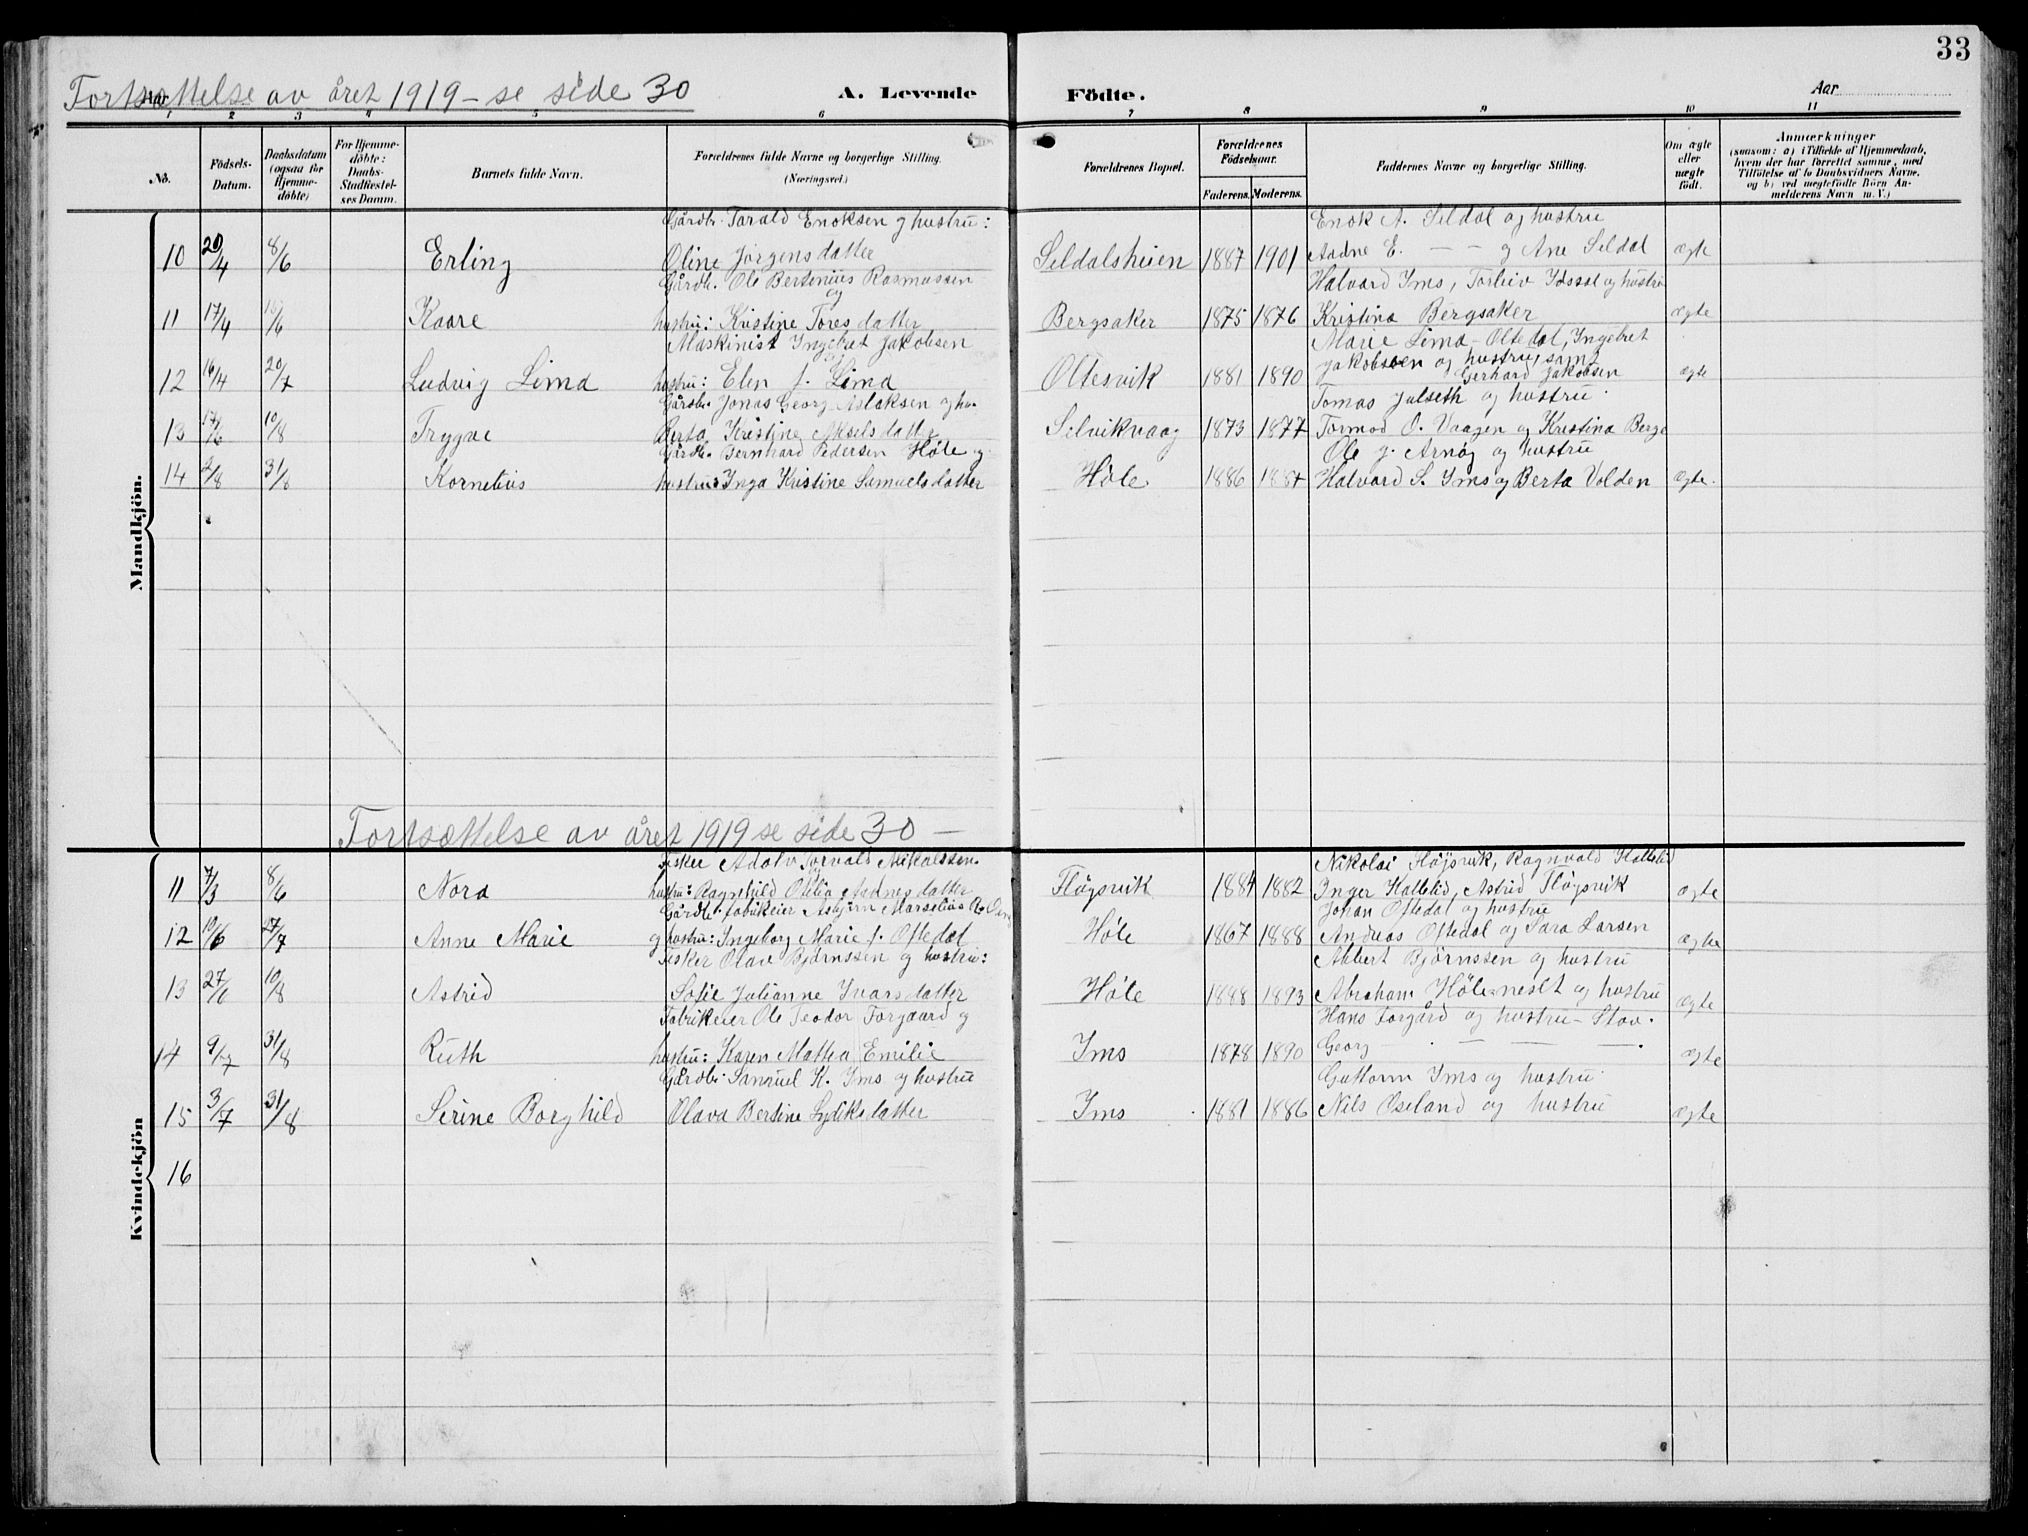 33
Fortsættelse av året 1919 – se side 30
A. Levende Födte.
Aar
1 2 3 4 5 6 7 8 9 10 11
No.
Födsels-Datum.
Daabsdatum (ogsaa for Hjemme-döbte)
For Hjemme-döbte: Daabs-Stadfæstel-ses Datum.
Barnets fulde Navn.
Forældrenes fulde Navne og borgerlige Stilling. (Næringsvei.)
Forældrenes Bopæl.
Forældrenes Födselsaar.
Faderens. Moderens.
Faddernes Navne og borgerlige Stilling.
Om ægte eller uægte födt.
Anmærkninger
(saasom: a) i Tilfælde af Hjemmedaab, hvem der har forrettet samme, med Tilföielse af to Daabsvidners Navne, og b) ved uegtefödte Börn An-melderens Navn m. V.)
Mandkjön.
Gårdb. Tarald Enoksen og hustru: Enok A. Seldal og hustru
10 20/4 8/6 Erling Oline Jørgensdatter Seldalsheien 1887 1901 Aadne E. — — og Ane Seldal ægte
Gårdb. Ole Bertinius Rasmussen og Halvard Ims, Torleiv Idssøe og hustru
11 17/4 /6 Kaare hustru: Kristine Toresdatter Bergsaker 1875 1876 Kristina Bergsaker ægte
Maskinist Ingebret Jakobsen og Marie Lima – Oltedal, Ingebret
12 16/4 20/7 Ludvig Lima hustru: Elen f. Lima Oltesvik 1881 1890 Jakobsen og hustru, samt Gerhard Jakobsen ægte
Gårdb. Jonas Georg Aslaksen og hu. Tomas Julseth og hustru.
13 17/6 10/8 Trygve Berta Kristine Akselsdatter Selvikvaag 1873 1877 Tormod O. Vaagen og Kristina Berge
Gårdb. Bernhard Pedersen Høle og Ole J. Arnøy og hustru
14 2/8 31/8 Kornelius hustru: Inga Kristine Samuelsdatter Høle 1886 1887 Halvard S. Ims og Berta Volden ægte.
Fortsættelse av året 1919 se side 30 —
Kvindekjön
Fisker Adolv Torvald Mikalssen. og Nikolai Fløjsvik, Ragnvald Hatleli
11 7/3 8/6 Nora hustru: Ragnhild Otilia Aadnesdatter Fløgsvik 1884 1882 Inger Hatlelid, Astrid Fløgsvik ægte
Gårdb. fabrikeier Asbjørn Marselius Johan Oftedal og hustru
12 10/6 27/7 Anne Marie og hustru: Ingeborg Marie f. Oftedal Høle 1867 1888 Andreas Oftedal og Sara Larsen ægte
Fisker Olav Bjørnssen og hustru: Albert Bjørnssen og hustru
13 27/6 10/8 Astrid Sofie Julianne Ivarsdatter Høle 1888 1893 Abraham Høle=neset og hustru ægte
Fabrikeier Ole Teodor Forgaard og Hans Forgård og hustru – Stav.
14 9/7 31/8 Ruth hustru: Karen Mattea Emilie Ims 1878 1890 Georg — . — — —. ægte
Gårdb. Samuel K. Ims og hustru Guttorm Ims og hustru
15 3/7 31/8 Serine Borghild Olava Bertine Lydiksdatter Ims 1881 1886 Nils Øseland og hustru ægte
16